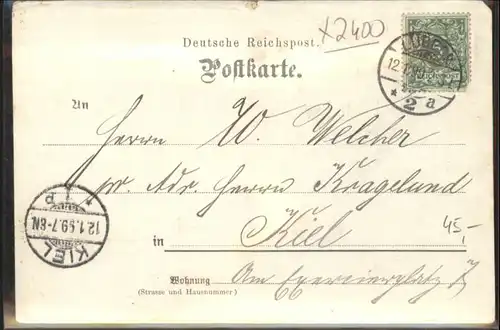 x2400
Deutsche Reichspost.
Postkarte.
LÜBECK
12.1.99.
* 2 a
An
Herrn W. Welcher
pr. Adr. Herrn Krageland
45,-
in Kiel
KIEL
12.1.99.7-8N.
Wohnung Am Exercierplatz 7
(Strasse und Hausnummer)